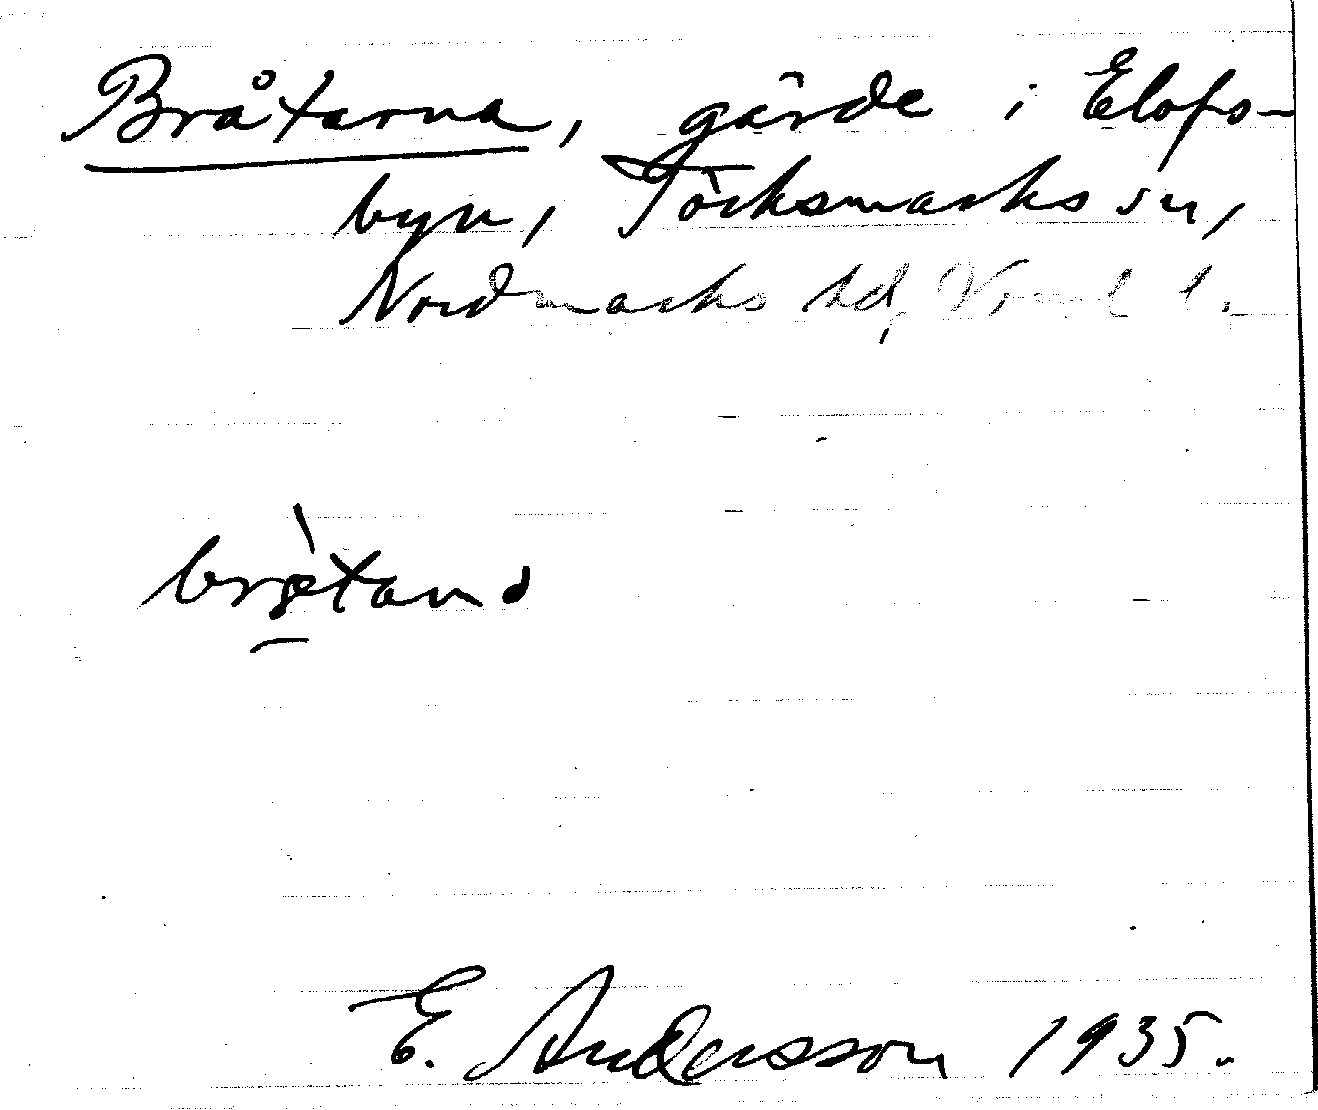 Bråtarna, gärde i Elofs-
byn, Töcksmarks sn,
Nordmarks hd, Värml l.
E. Andersson 1935.